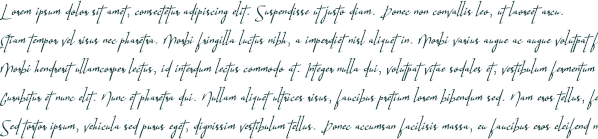 Lorem ipsum dolor sit amet, consectetur adipiscing elit. Suspendisse et justo diam. Donec non convallis leo, ut laoreet arcu.
Etiam tempor vel risus nec pharetra. Morbi fringilla luctus nibh, a imperdiet nisl aliquet in. Morbi varius augue ac augue volutpat f
Morbi hendrerit ullamcorper lectus, id interdum lectus commodo et. Integer nulla dui, volutpat vitae sodales et, vestibulum fermentum
Curabitur et nunc elit. Nunc et pharetra dui. Nullam aliquet ultrices risus, faucibus pretium lorem bibendum sed. Nam eros tellus, fe
Sed tortor ipsum, vehicula sed purus eget, dignissim vestibulum tellus. Donec accumsan facilisis massa, eu faucibus eros eleifend n